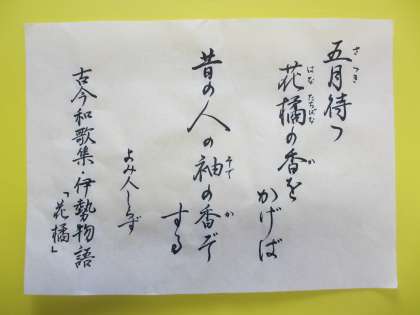 五月待つ
花橘の香を
かげば
昔の人の袖の香ぞ
する
よみ人しらず
古今和歌集・伊勢物語
「花橘」
さ つき
はな たちばな
か
そで
か